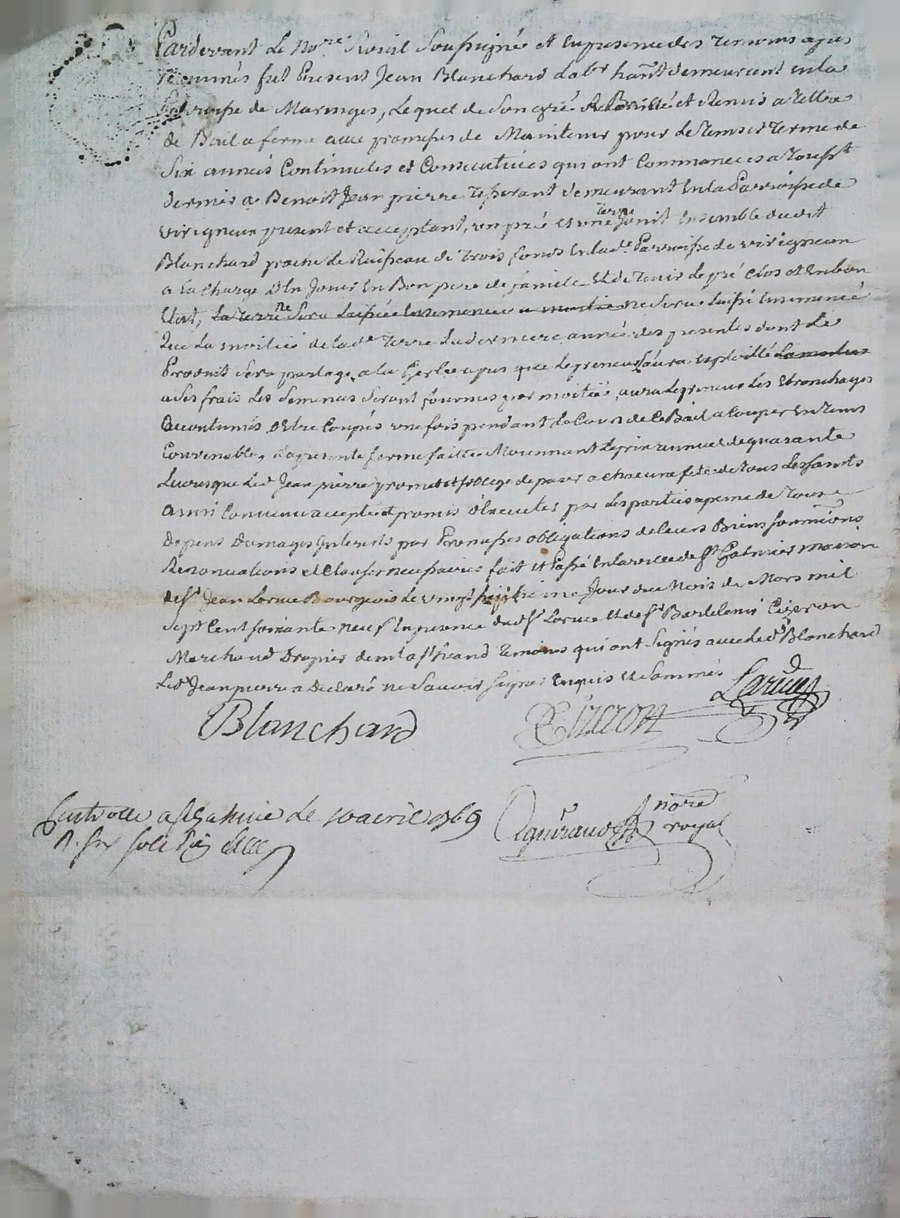 Pardevant Le No.re Roial Soussigné et En presence des Temoins apres
nommés fut Present Jean Blanchard Labr hant demeurant en la
Parroisse de Maringes, Lequel de Son gré a Baillé et Remis a Tiltre
de Bail a ferme avec promesses de Maintenir pour Le Tems et Terme de
Six années Continuelles et Consecutives qui ont Commancées a Toust
dernier a Benoit Jean pierre demeurant En la Parroisse de
virigneux present et acceptant, un pré et une Terre Joint Ensemble dudit
Blanchard proche Le Ruisseau de Trois fonds En lad.e Parroisse de virigneux
a La Charge d'En Jouir En Bon pere de famille Et de Tenir Le pré Clos et En bon
Etat, La Terre Sera Laissée Ensemencée a moitié ne Sera Laissé Ensemencé
que La moitié de lad.e Terre La derniere année des presentes dont Le
Produit Sera partagé a la Gerbe apres que Le preneur L'aura Exploitté La moitié
a Ses frais Les Semences Seront fournies par moitié, aura Le preneur Les Etronchages
accoutumés d'Etre Coupés une fois pendant Le Cours de Ce Bail a Couper En Tems
Convenable, La presente ferme faitte Moyennant Le prix annuel de quarante
Livres que Led. Jean pierre promet et s'oblige de payer a chacune fete de Tous Les Saints
ainsi Convenu accepté et promis d'Executer par Les parties a peine de Tous
Depens Dommages Interets par Promesses obligations de Leurs Biens Soumissions
Renonciations et Clauses necessaires fait et Passé En La ville de St Galmier maison
de Sr. Jean Larue Bourgeois Le vingt Septieme Jour du Mois de Mars mil
Sept Cent Soixante neuf En presence dud. Sr. Larue Et de Sr. Bartelemi Cizeron
Marchand Drapier dem.t a St Temoins qui ont Signés avec Led. Blanchard
Led. Jean pierre a Declaré ne Savoir Signer Enquis Et Sommé
Blanchard Cizeron Larue
Controllé a St Galmie Le 10 avril 1769
R. Six Sols
nore
royal